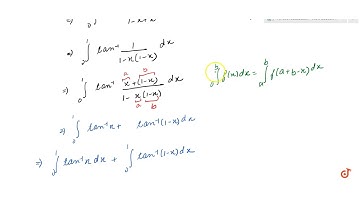 ⇒ ∫₀¹ 1-x+x
⇒ ∫₀¹ tan⁻¹ 1/(1-x(1-x)) dx
a b
⇒ ∫₀¹ tan⁻¹ (x+(1-x))/(1-x(1-x)) dx
a b
∫ₐᵇ f(x)dx = ∫ₐᵇ f(a+b-x)dx
⇒ ∫₀¹ tan⁻¹x + tan⁻¹(1-x)dx
⇒ ∫₀¹ tan⁻¹x dx + ∫₀¹ tan⁻¹(1-x)dx